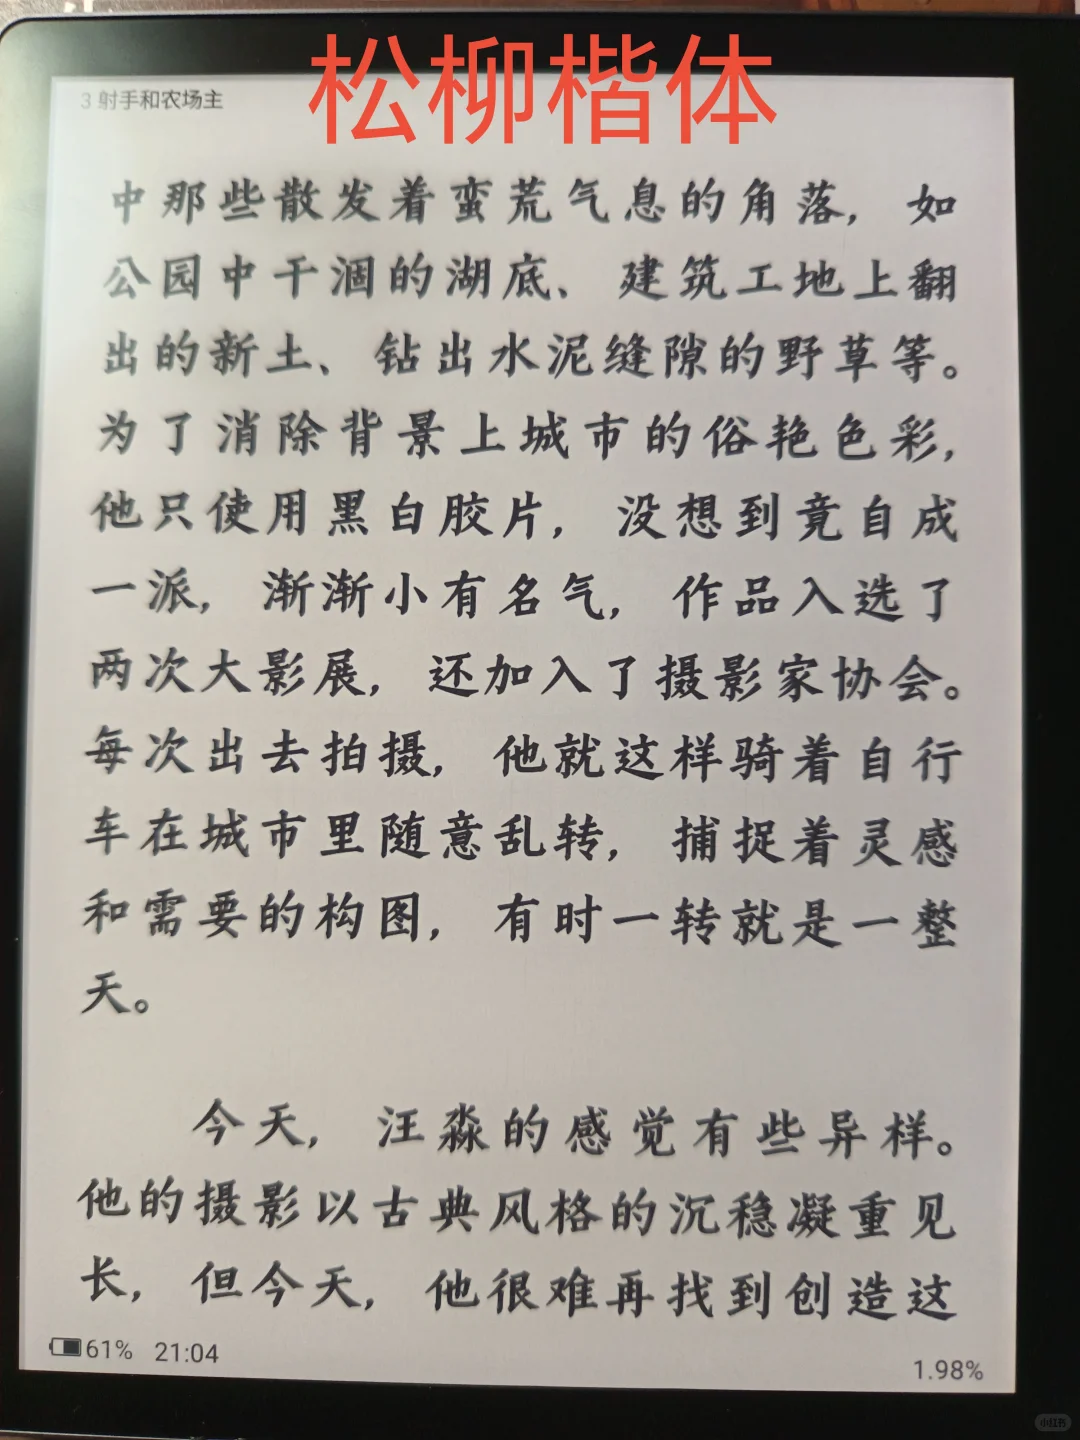 松柳楷体
3 射手和农场主
中那些散发着蛮荒气息的角落，如
公园中干涸的湖底、建筑工地上翻
出的新土、钻出水泥缝隙的野草等。
为了消除背景上城市的俗艳色彩，
他只使用黑白胶片，没想到竟自成
一派，渐渐小有名气，作品入选了
两次大影展，还加入了摄影家协会。
每次出去拍摄，他就这样骑着自行
车在城市里随意乱转，捕捉着灵感
和需要的构图，有时一转就是一整
天。
今天，汪淼的感觉有些异样。
他的摄影以古典风格的沉稳凝重见
长，但今天，他很难再找到创造这
61% 21:04
1.98%
小红书